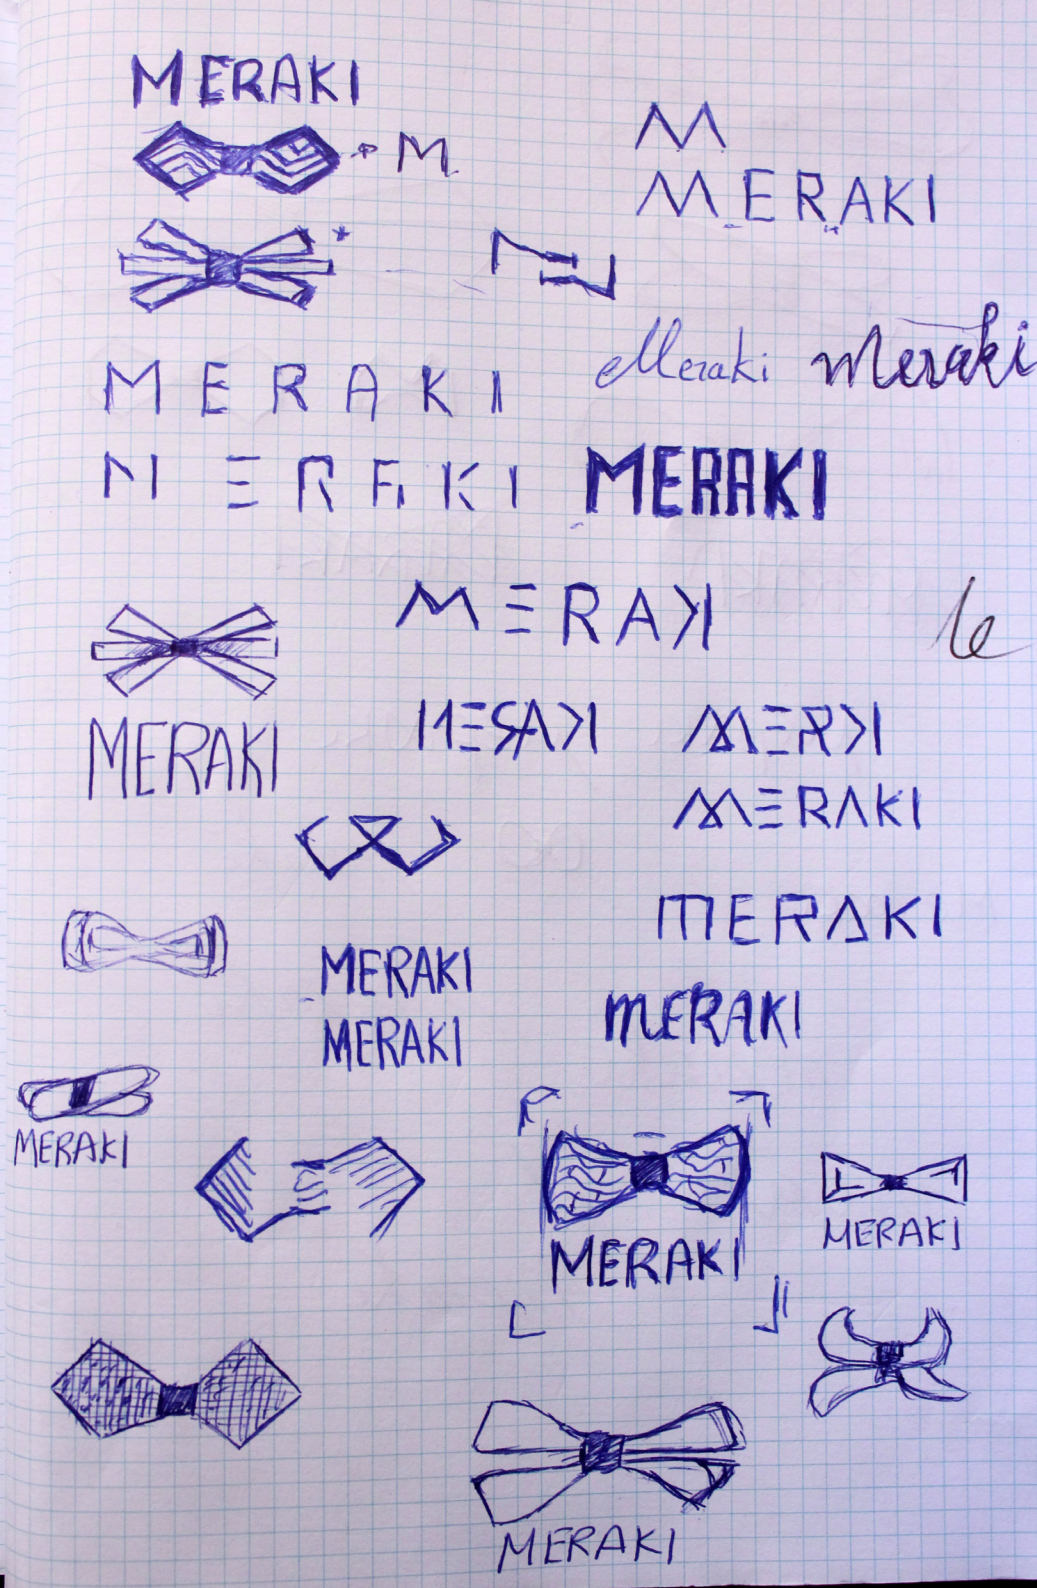 MERAKI
M
M
MERAKI
MERAKI
Meraki
meraki
MERAKI
MERAKI
MERAK
MERAKI
MERAKI
MERAKI
MERAKI
MERAKI
MERAKI
MERAKI
MERAKI
MERAKI
MERAKI
MERAKI